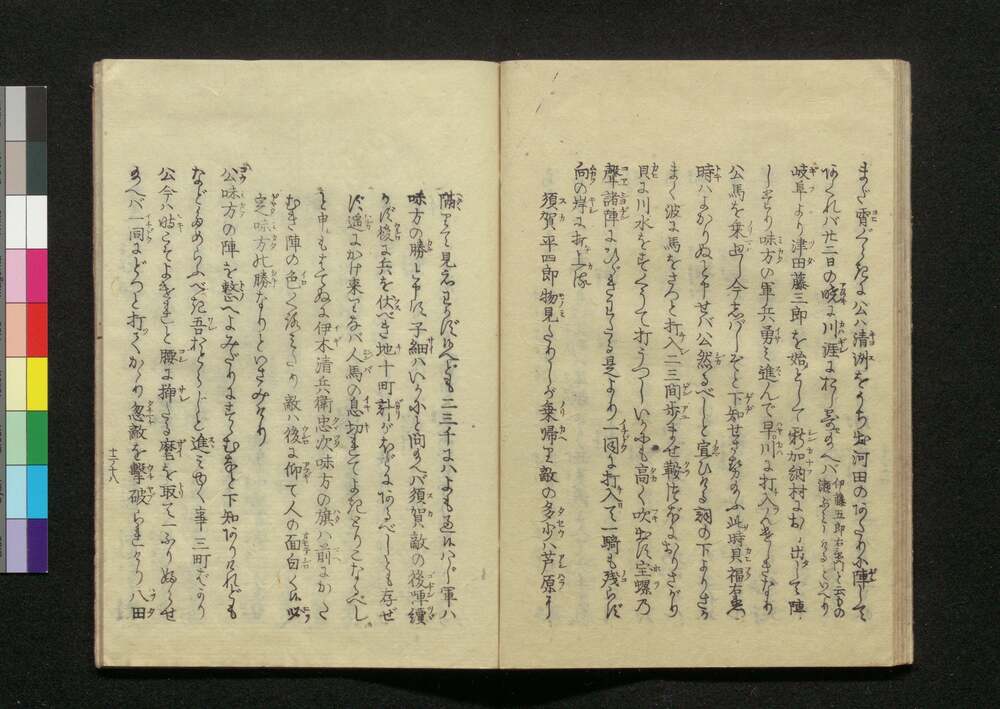 まだ宵がてらに公ハ清洲をうち出河田のあたりに陣して
あくれバ廿二日の暁に川涯におし出させ給へバ伊藤五郎右衛門と云もの海ぶみをしけるといへり
岐阜より津田藤三郎を始として新加納村におし出して陣
しけり味方の軍兵勇ミ進んで早川に打入んとしきなり
公馬を乗出し今志バしぞと下知せさせ給ふ此時貝福右衛門
時ハよかりぬと申せバ公然るべしと宣ひける詞の下よりさか
まく波に馬をさつと打入二三間歩ませ鞍つぼにおりさがり
貝に川水をすくうて打うつしいかにも高く吹出す宝螺乃
聲諸陣にひびきわたる是より一同に打入て一騎も残らず
向の岸に打上る
須賀平四郎物見たりしが乗帰り敵の多少ハ芦原に
隔りて見え候はず候へども二三千にハよも過候はじ軍ハ
味方の勝と申す子細ハいかにと問給へバ須賀敵の後陣續
かず後に兵を伏べき地十町計がほどにあるべしとも存ぜ
ず遥にかけ来りなバ人馬の息切れてよきとりことなるべし
と申もはてぬに伊木清兵衛忠次味方の旗ハ前にかた
むき陣の色くろミたり敵ハ後に仰て人の面白く候必
定味方の勝なりといさみけり
公味方の陣を整へよみだりにすゝむなと下知ありけれども
などためらふべき吾おとらじと進ミ行く事三町ばかり
公今ハ時こそよき候と腰に挿たる麾を取て一ふりふらせ
給へバ一同にどつと打てかゝり忽敵を撃破られたり八田
十二ノ八